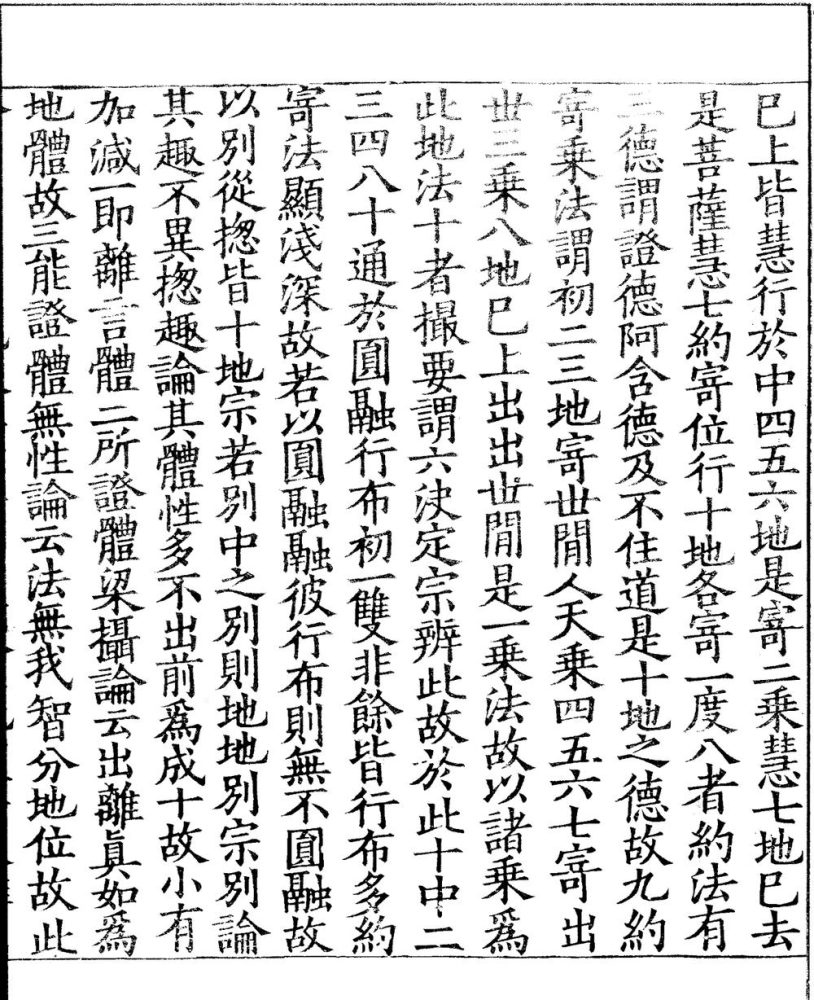 已上皆慧行於中四五六地是寄二乗慧七地已去
是菩薩慧七約寄位行十地各寄一度八者約法有
三德謂證德阿含德及不住道是十地之德故九約
寄乗法謂初二三地寄世間人天乗四五六七寄出
世三乗八地已上出出世間是一乗法故以諸乗爲
此地法十者撮要謂六决定宗辨此故於此十中二
三四八十通於圓融行布初一雙非餘皆行布多約
寄法顯淺深故若以圓融融彼行布則無不圓融故
以別從揔皆十地宗若別中之別則地地別宗別論
其趣不異揔趣論其體性多不出前爲成十故小有
加減一即離言體二所證體梁攝論云出離眞如爲
地體故三能證體無性論云法無我智分地位故此